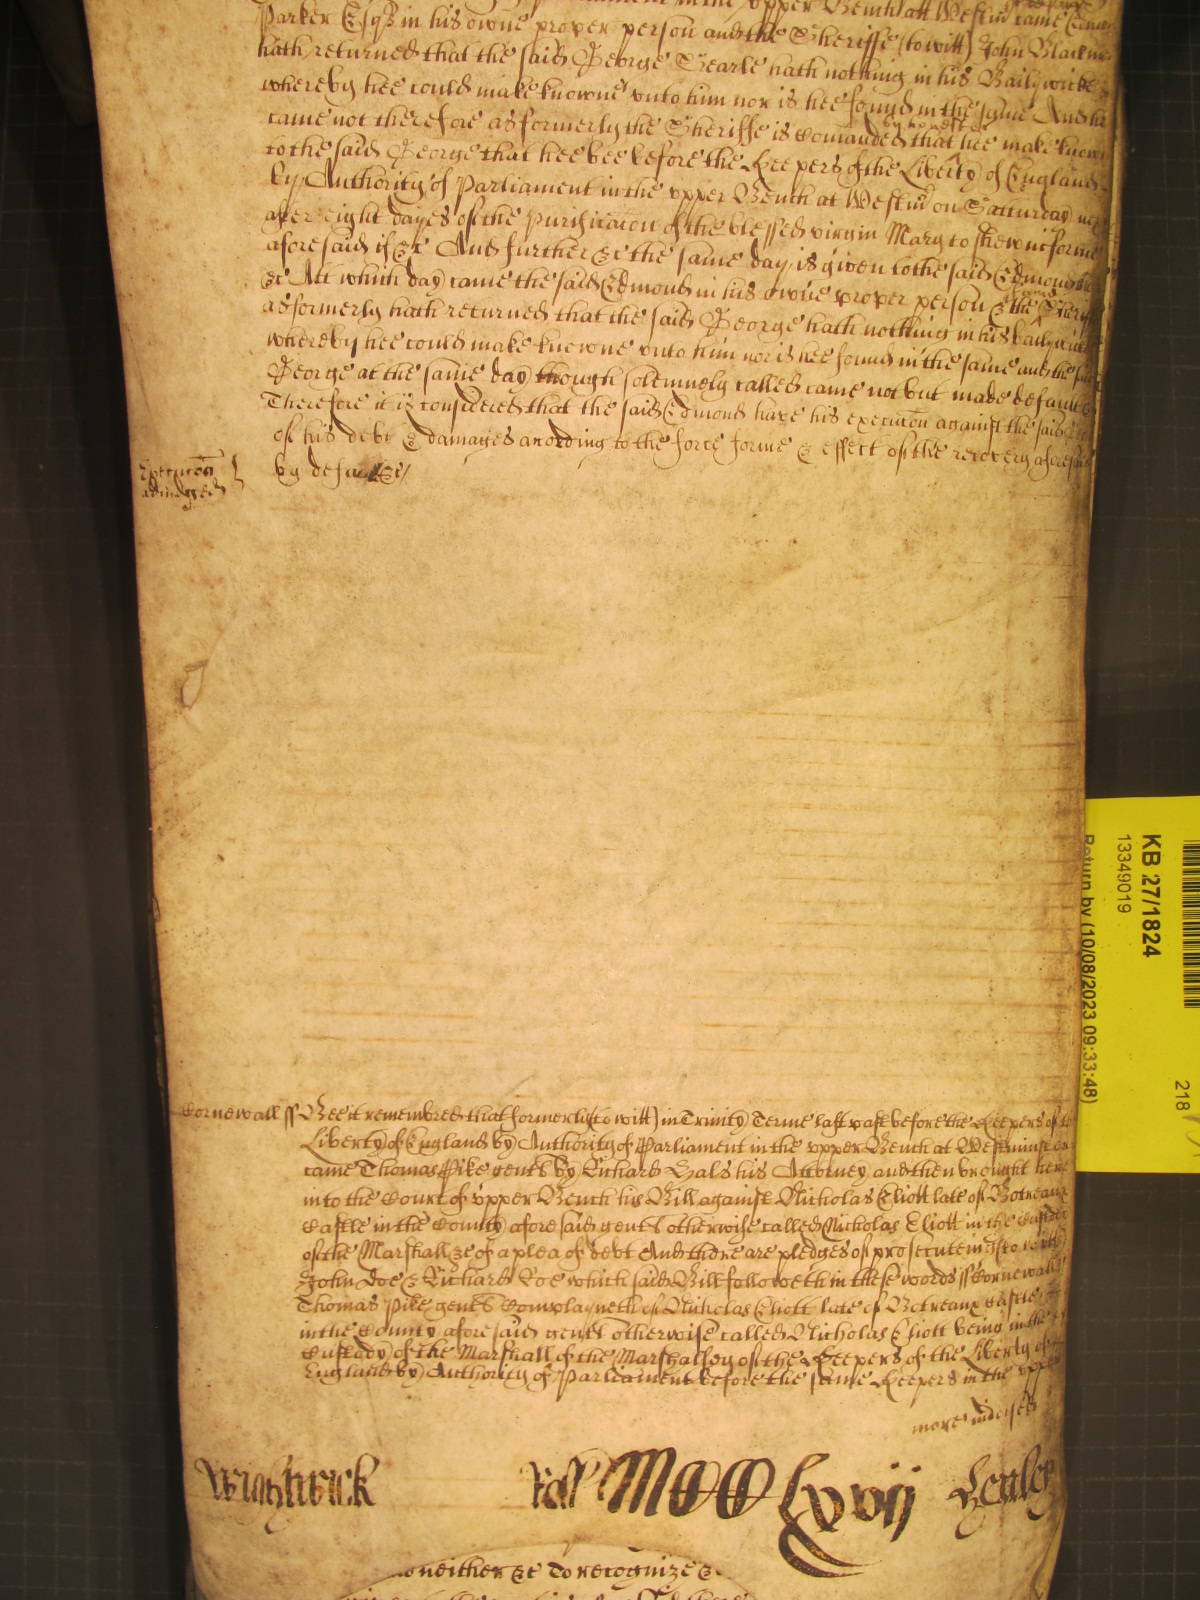 Parliament in the upper Bench att Westm̄ came
Parker Esqr in his owne proper person and the Sheriffe (to witt) John Blackm
hath returned that the said George Searle hath nothing in his Bailywicke
whereby hee could make knowne unto him nor is hee found in the same And hee
came not therefore as formerly the Sheriffe is Comanded that hee make knowne
to the said George that hee bee before the Keepers of the Liberty of England
by Authority of Parliament in the upper Bench at Westm̄ on Satturday next
after eight dayes of the Purificac̄on of the blessed virgin Mary to shew in forme
aforesaid if &c And further &c the same day is given to the said Edmond
&c Att which day came the said Edmond in his owne proper person & the Sheriffe
as formerly hath returned that the said George hath nothing in his bailywicke
whereby hee could make knowne unto him nor is hee found in the same and the said
George at the same day though solemnely called came not but made default
Therefore it is considered that the said Edmond have his execuc̄on against the said
of his debt & damages according to the force forme & effect of the recovery aforesaid
by default &c
Execuc̄on
adiudged
Cornewall ss Bee it remembred that formerly (to witt) in Trinity Terme last past before the Keepers of the
Liberty of England by Authority of Parliament in the upper Bench at Westminster
came Thomas Pike gent by Richard Hals his Attorney and then brought here
into the Court of upper Bench his Bill against Nicholas Eliott late of Botreaux
Castle in the County aforesaid gent otherwise called Nicholas Eliott in the Custody
of the Marshall &c of a plea of debt And there are pledges of prosecuteing (to witt)
John Doe & Richard Roe which said Bill followeth in these words ss Cornewall
Thomas Pike gent Complayneth of Nicholas Eliott late of Botreaux Castle
in the County aforesaid gent otherwise called Nicholas Eliott being in the
Custody of the Marshall of the Marshalsey of the Keepers of the Liberty of
England by Authority of Parliament before the same Keepers in the upper
more indorsed
Wightwick Roll MDCC Lxvij Henley
neither &c to recognize &c
KB 27/1824
13349019
Return by (10/08/2023 09:33:48)
218